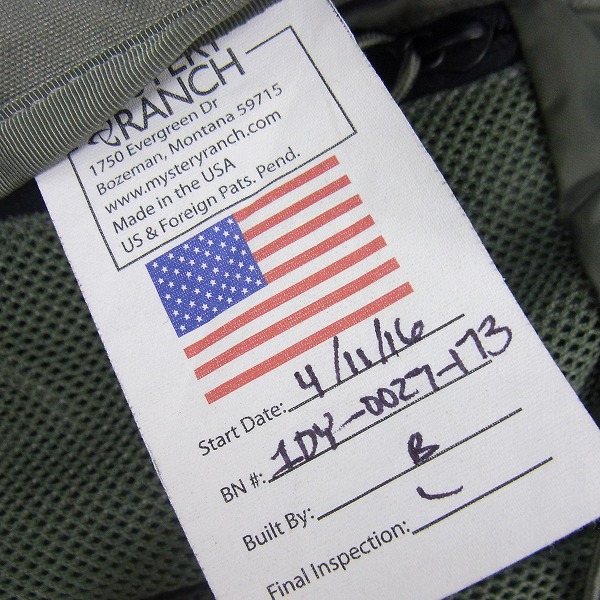 RANCH
1750 Evergreen Dr
Bozeman, Montana 59715
www.mysteryranch.com
Made in the USA
US & Foreign Pats. Pend.
Start Date: 4/11/16
BN #: 1DY-0027-173
Built By: B
Final Inspection: L